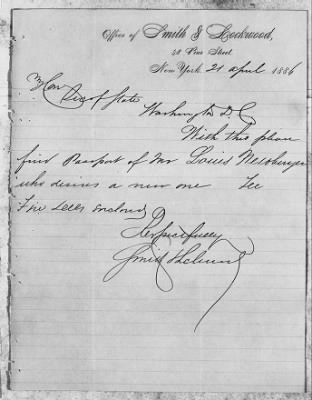 Office of Smith & Lockwood,
48 Pine Street
New York 21 April 1886
Hon
Sec of State
Washington D.C
With this please
find Passport of Mr Louis
who desires a new one Fee
Five Dolls enclosed
Respectfully
Smith &